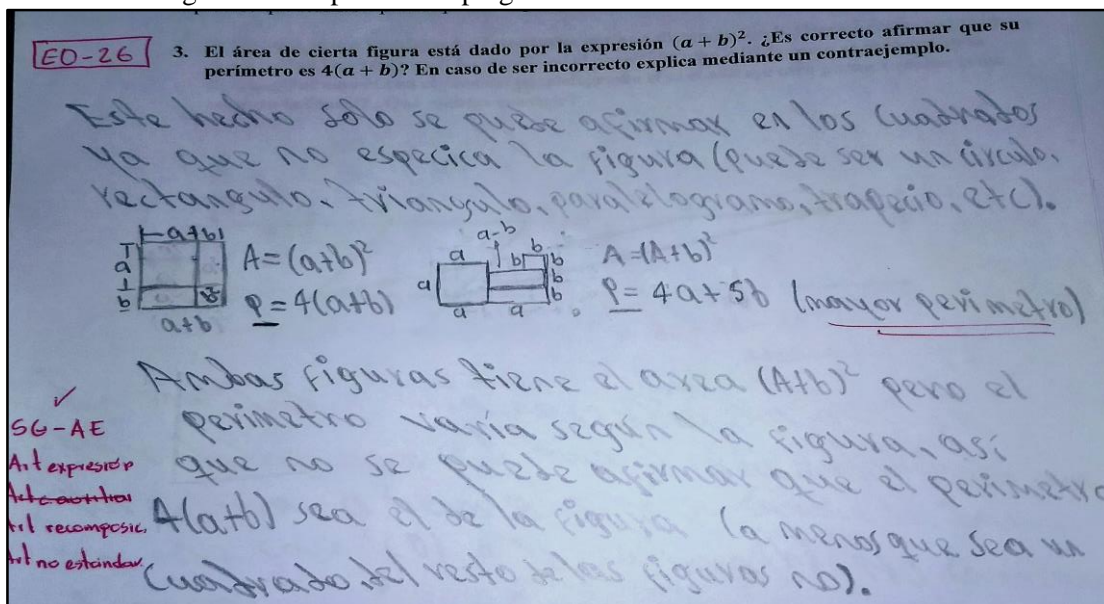 EO-26
3. El área de cierta figura está dado por la expresión (a + b)². ¿Es correcto afirmar que su
perímetro es 4(a + b)? En caso de ser incorrecto explica mediante un contraejemplo.
Este hecho sólo se puede afirmar en los cuadrados
ya que no especica la figura (puede ser un círculo,
rectangulo, triangulo, paralelogramo, trapecio, etc).
a+b
a
b
a+b
A=(a+b)²
P=4(a+b)
a-b
a
b
b
b
b
a
b
a
a
A=(A+b)²
P=4a+5b (mayor perimetro)
Ambas figuras tiene el area (A+b)² pero el
perimetro varía según la figura, así
que no se puede afirmar que el perimetro
4(a+b) sea el de la figura (a menos que sea un
cuadrado, del resto de las figuras no).
✓
SG-AE
Art expresión
Art recomposic.
Art no estándar.